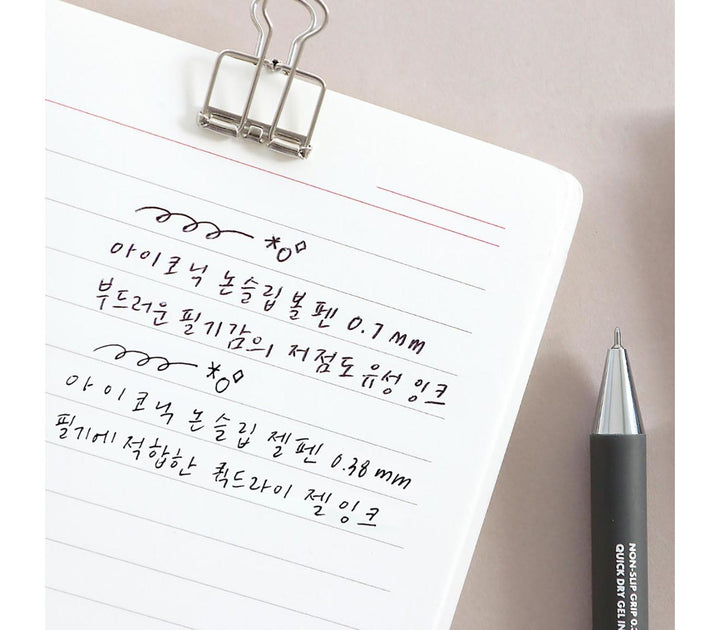 아이코닉 논슬립 볼펜 0.7 mm
부드러운 필기감의 저점도 유성 잉크
아이코닉 논슬립 젤펜 0.38 mm
필기에 적합한 퀵드라이 젤 잉크
NON-SLIP GRIP
QUICK DRY GEL